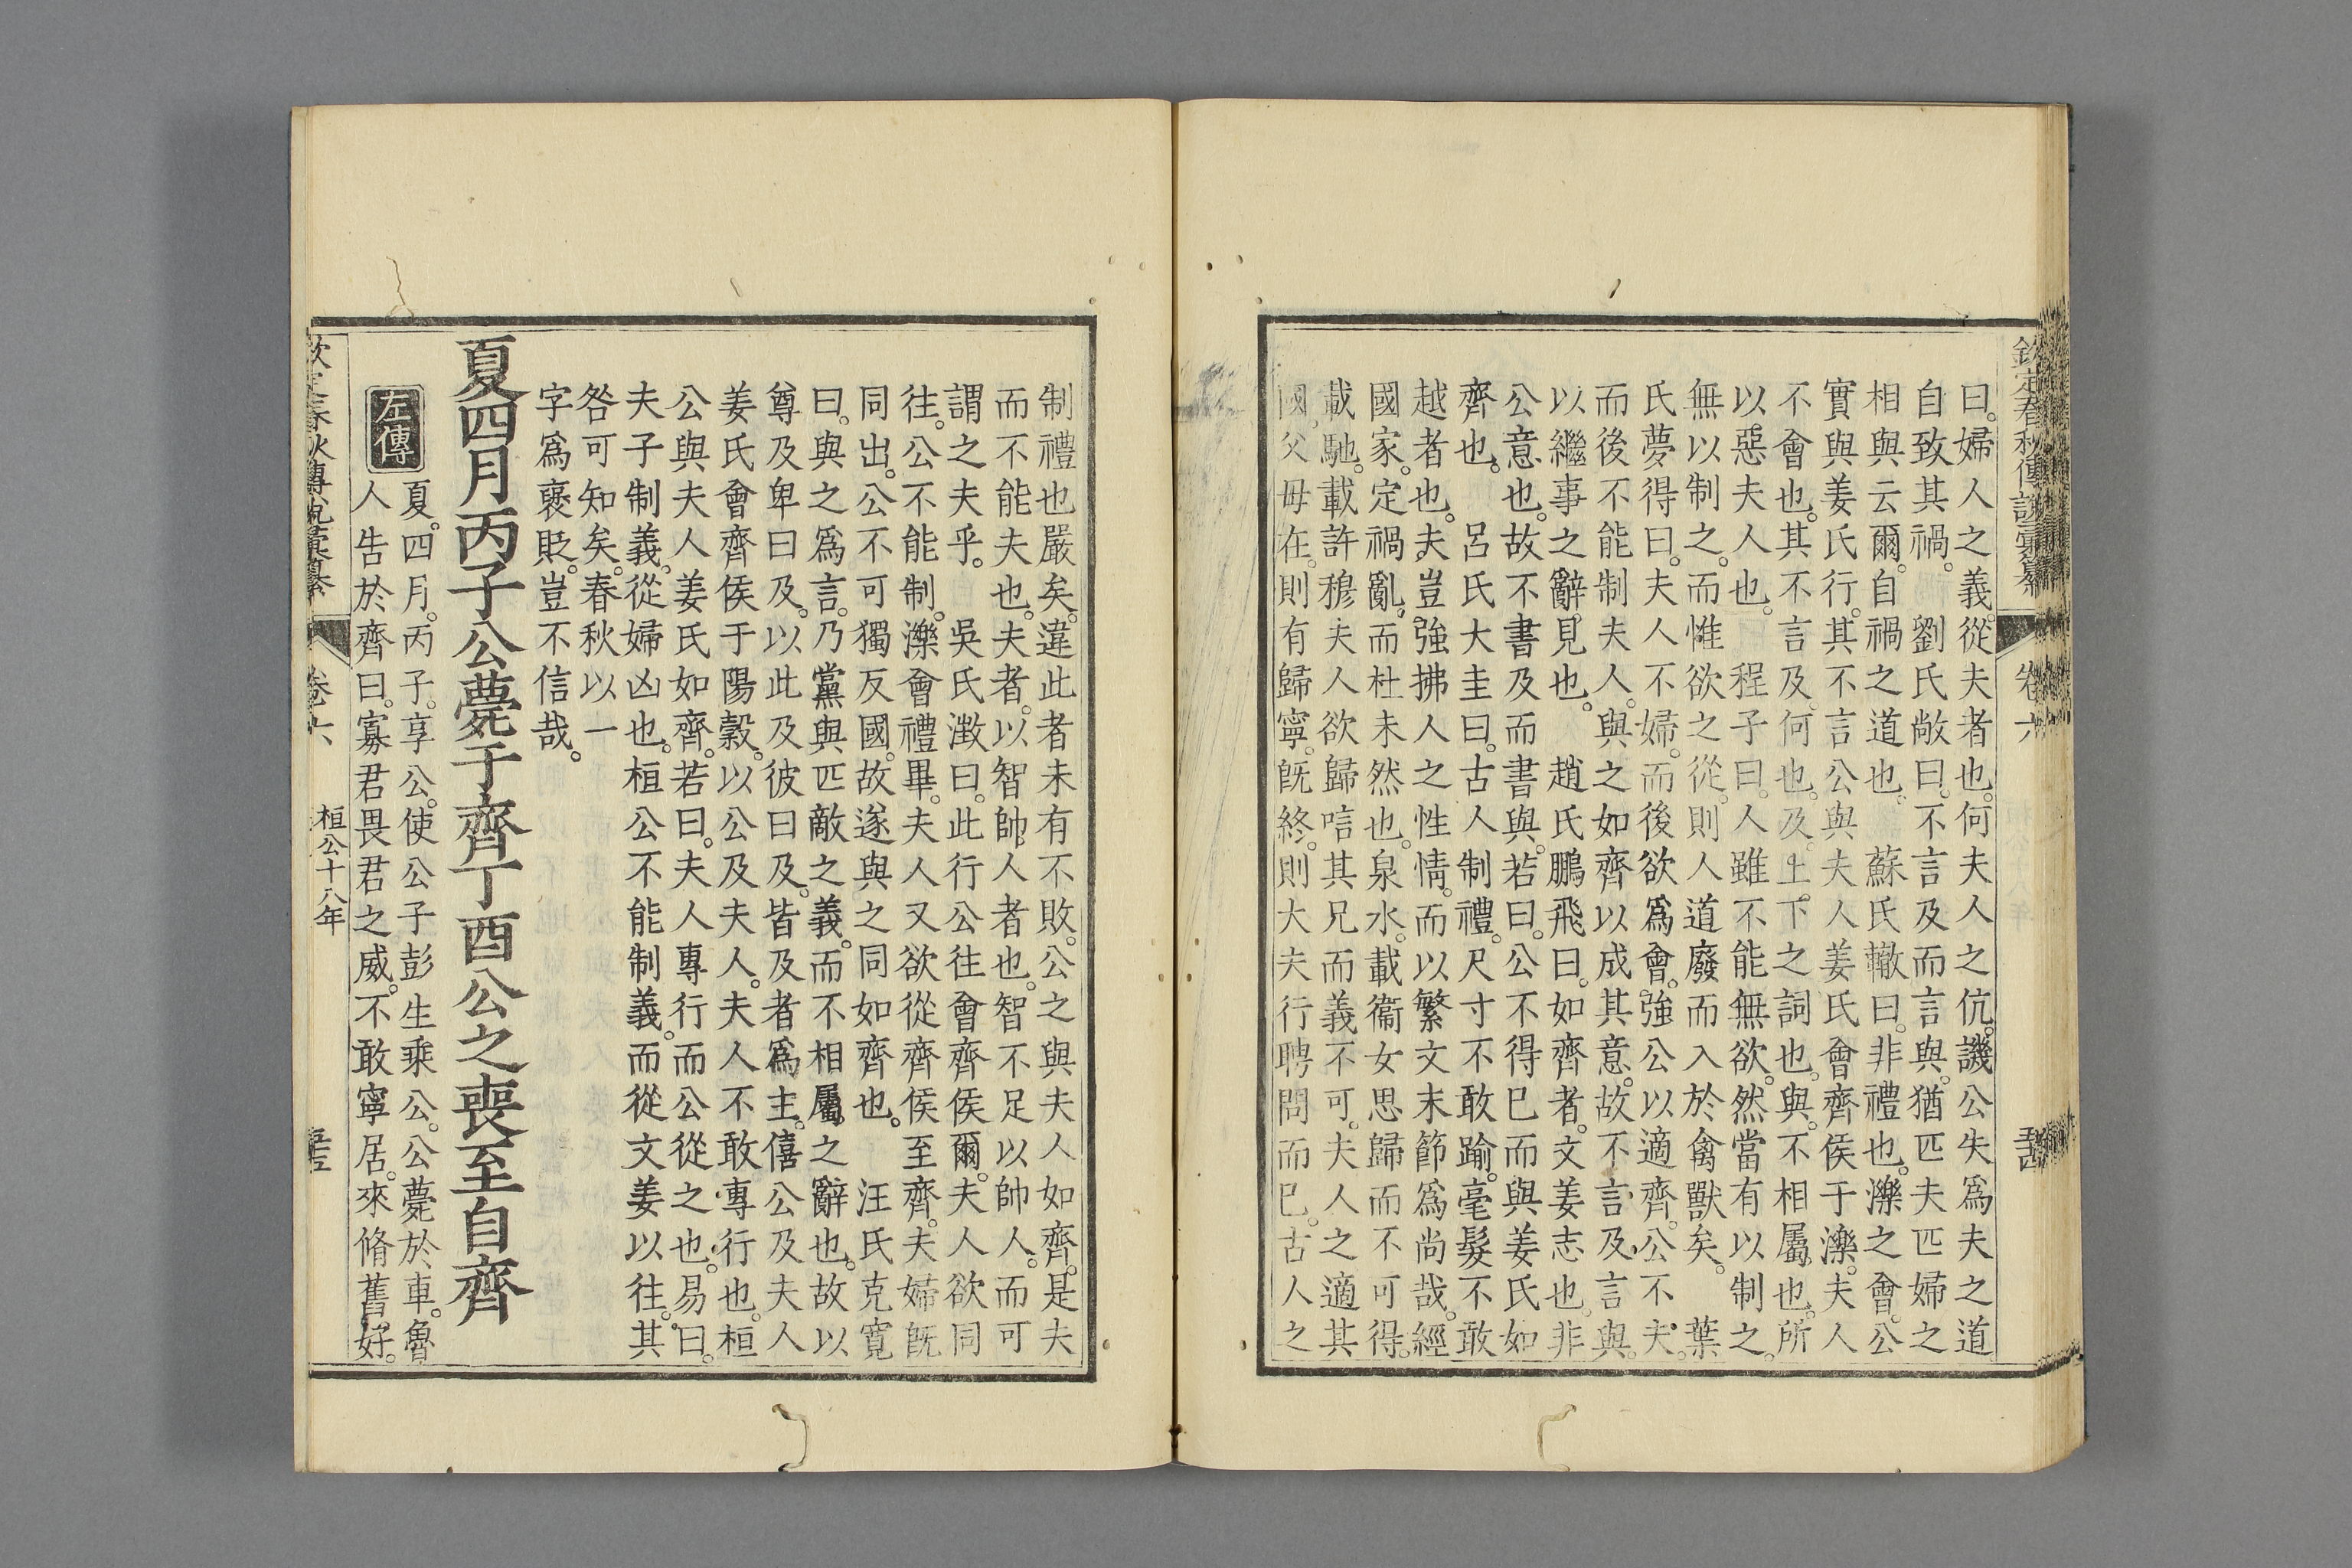 欽定春秋傳說彙纂 卷六
曰。婦人之義。從夫者也。何夫人之伉。譏公失爲夫之道
自致其禍。 劉氏敞曰。不言及而言與。猶匹夫匹婦之
相與云爾。自禍之道也。 蘇氏轍曰。非禮也。濼之會。公
實與姜氏行。其不言公與夫人姜氏會齊侯于濼。夫人
不會也。其不言及。何也。及。上下之詞也。與。不相屬也。所
以惡夫人也。 程子曰。人雖不能無欲。然當有以制之。
無以制之。而惟欲之從。則人道廢而入於禽獸矣。 葉
氏夢得曰。夫人不婦。而後欲爲會。強公以適齊。公不夫。
而後不能制夫人。與之如齊以成其意。故不言及言與。
以繼事之辭見也。 趙氏鵬飛曰。如齊者。文姜志也。非
公意也。故不書及而書與。若曰。公不得已而與姜氏如
齊也。 呂氏大圭曰。古人制禮。尺寸不敢踰。毫髮不敢
越者也。夫豈強拂人之性情。而以繁文末節爲尚哉。經
國家。定禍亂。而杜未然也。泉水。載衞女思歸而不可得。
載馳。載許穆夫人欲歸唁其兄而義不可。夫人之適其
國。父毋在。則有歸寧。旣終。則大夫行聘問而已。古人之
制禮也嚴矣。違此者未有不敗。公之與夫人如齊。是夫
而不能夫也。夫者。以智帥人者也。智不足以帥人。而可
謂之夫乎。 吳氏澂曰。此行公往會齊侯爾。夫人欲同
往。公不能制。濼會禮畢。夫人又欲從齊侯至齊。夫婦旣
同出。公不可獨反國。故遂與之同如齊也。 汪氏克寬
曰。與之爲言。乃黨與匹敵之義。而不相屬之辭也。故以
尊及卑曰及。以此及彼曰及。皆及者爲主。僖公及夫人
姜氏會齊侯于陽穀。以公及夫人。夫人不敢專行也。桓
公與夫人姜氏如齊。若曰。夫人專行。而公從之也。易曰。
夫子制義。從婦凶也。桓公不能制義。而從文姜以往。其
咎可知矣。春秋以一
字爲襃貶。豈不信哉。
夏四月丙子公薨于齊丁酉公之喪至自齊
左傳 夏。四月。丙子。享公。使公子彭生乘公。公薨於車。魯
人告於齊曰。寡君畏君之威。不敢寧居。來脩舊好。
欽定春秋傳說彙纂 卷六 桓公十八年